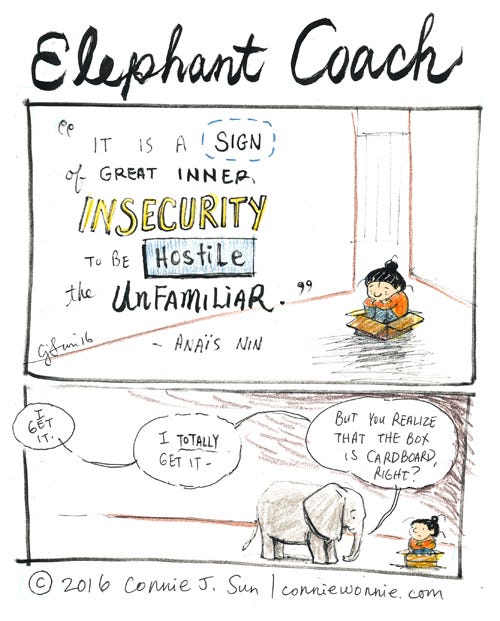 Elephant Coach
“ IT IS A SIGN
of GREAT INNER
INSECURITY
TO BE HOSTILE
the UNFAMILIAR. ”
- ANAÏS NIN
CJSun '16
I
GET
IT.
I TOTALLY
GET IT -
BUT YOU REALIZE
THAT THE BOX
IS CARDBOARD,
RIGHT?
© 2016 Connie J. Sun | conniewonnie.com